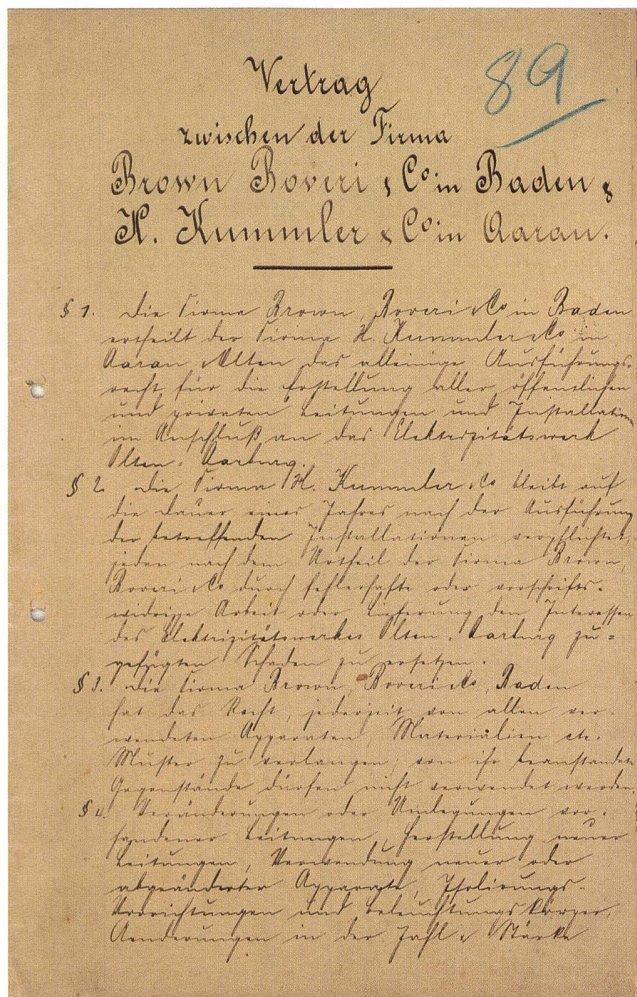 89
Vertrag
zwischen der Firma
Brown Boveri & Co in Baden &
H. Kummler & Co in Aarau.
§ 1. Die Firma Brown, Boveri & Co in Baden
ertheilt der Firma H. Kummler & Co in
Aarau & Olten das alleinige Ausführungs-
recht für die Erstellung aller öffentlichen
und privaten Leitungen und Installationen
im Anschluß an das Elektrizitätswerk
Olten-Aarburg.
§ 2. Die Firma H. Kummler & Co bleibt auf
die Dauer eines Jahres nach der Ausführung
der betreffenden Installationen verpflichtet,
jeden nach dem Urtheil der Firma Brown,
Boveri & Co durch fehlerhafte oder vorschrifts-
widrige Arbeit oder Lieferung den Interessen
des Elektrizitätswerkes Olten-Aarburg zu=
gefügten Schaden zu ersetzen.
§ 3. Die Firma Brown, Boveri & Co, Baden
hat das Recht, jederzeit von allen ver-
wendeten Apparaten, Materialien etc.
Muster zu verlangen; von ihr beanstandete
Gegenstände dürfen nicht verwendet werden.
§ 4. Veränderungen oder Umlegungen vor-
handener Leitungen, Herstellung neuer
Leitungen, Verwendung neuer oder
abgeänderter Apparate, Isolirungs-
Vorrichtungen und Beleuchtungskörper,
Aenderungen in der Zahl & Stärke